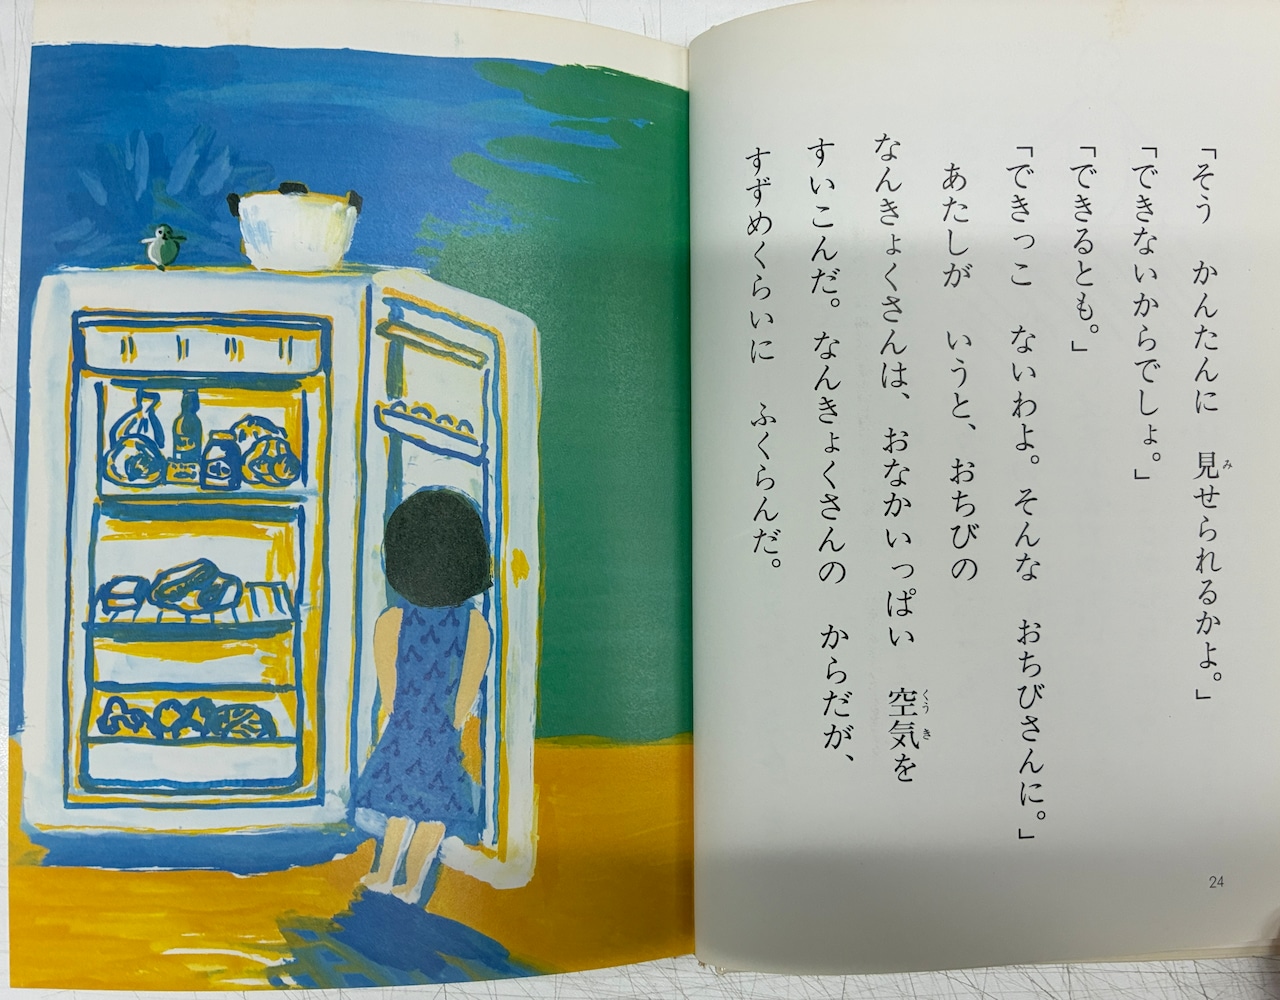 「そう　かんたんに　見せられるかよ。」
「できないからでしょ。」
「できるとも。」
「できっこ　ないわよ。そんな　おちびさんに。」
　あたしが　いうと、おちびの
なんきょくさんは、おなかいっぱい　空気を
すいこんだ。なんきょくさんの　からだが、
すずめくらいに　ふくらんだ。
24